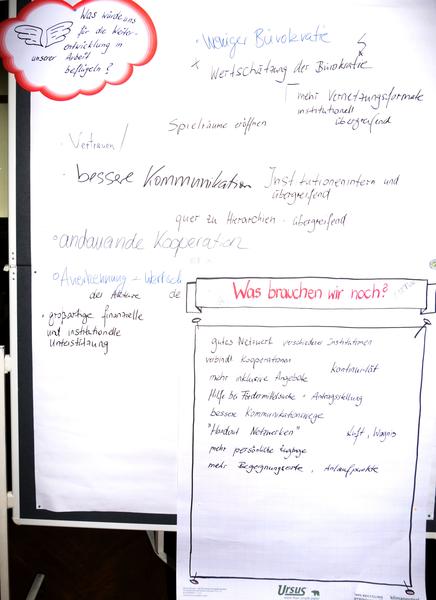 Was würde uns
für die Weiter-
entwicklung in
unserer Arbeit
beflügeln?
· Weniger Bürokratie
Wertschätzung der Bürokratie
mehr Vernetzungsformate
institutionell
übergreifend
Spielräume eröffnen
· Vertrauen!
· bessere Kommunikation Institutionenintern und
übergreifend
quer zu Hierarchien - übergreifend
andauernde Kooperation
Anerkennung - Wertsch
der Akteure de
großartige finanzielle
und institutionelle
Unterstützung
Was brauchen wir noch?
gutes Netzwerk verschiedener Institutionen
verbindl. Kooperationen
Kontinuität
mehr inklusive Angebote
Hilfe bei Fördermittelsuche + Antragstellung
bessere Kommunikationswege
"Hardout Netzwerken" Luft, Wagnis
mehr persönliche Zugänge
mehr Begegnungsorte, Anlaufpunkte
Ursus